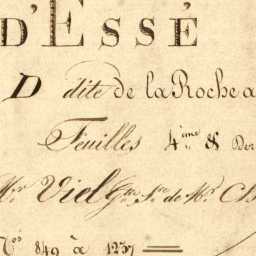 D'ESSÉ
D dite de la Roche a
Feuilles 4ème & Der
Mr Viel Gm. Sre de Mr Ch
Nos 849 à 1237